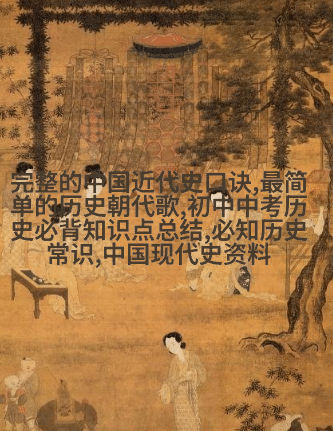 完整的中国近代史口诀,最简
单的历史朝代歌,初中中考历
史必背知识点总结,必知历史
常识,中国现代史资料